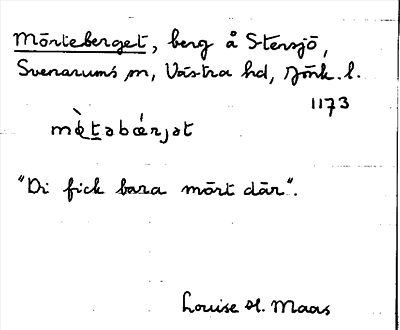 Mörteberget, berg å Stensjö,
Svenarums sn, Västra hd, Jönk. l.
1173
mø̀ṯəbǽrjət
"Di fick bara mört där".
Louise H. Maas